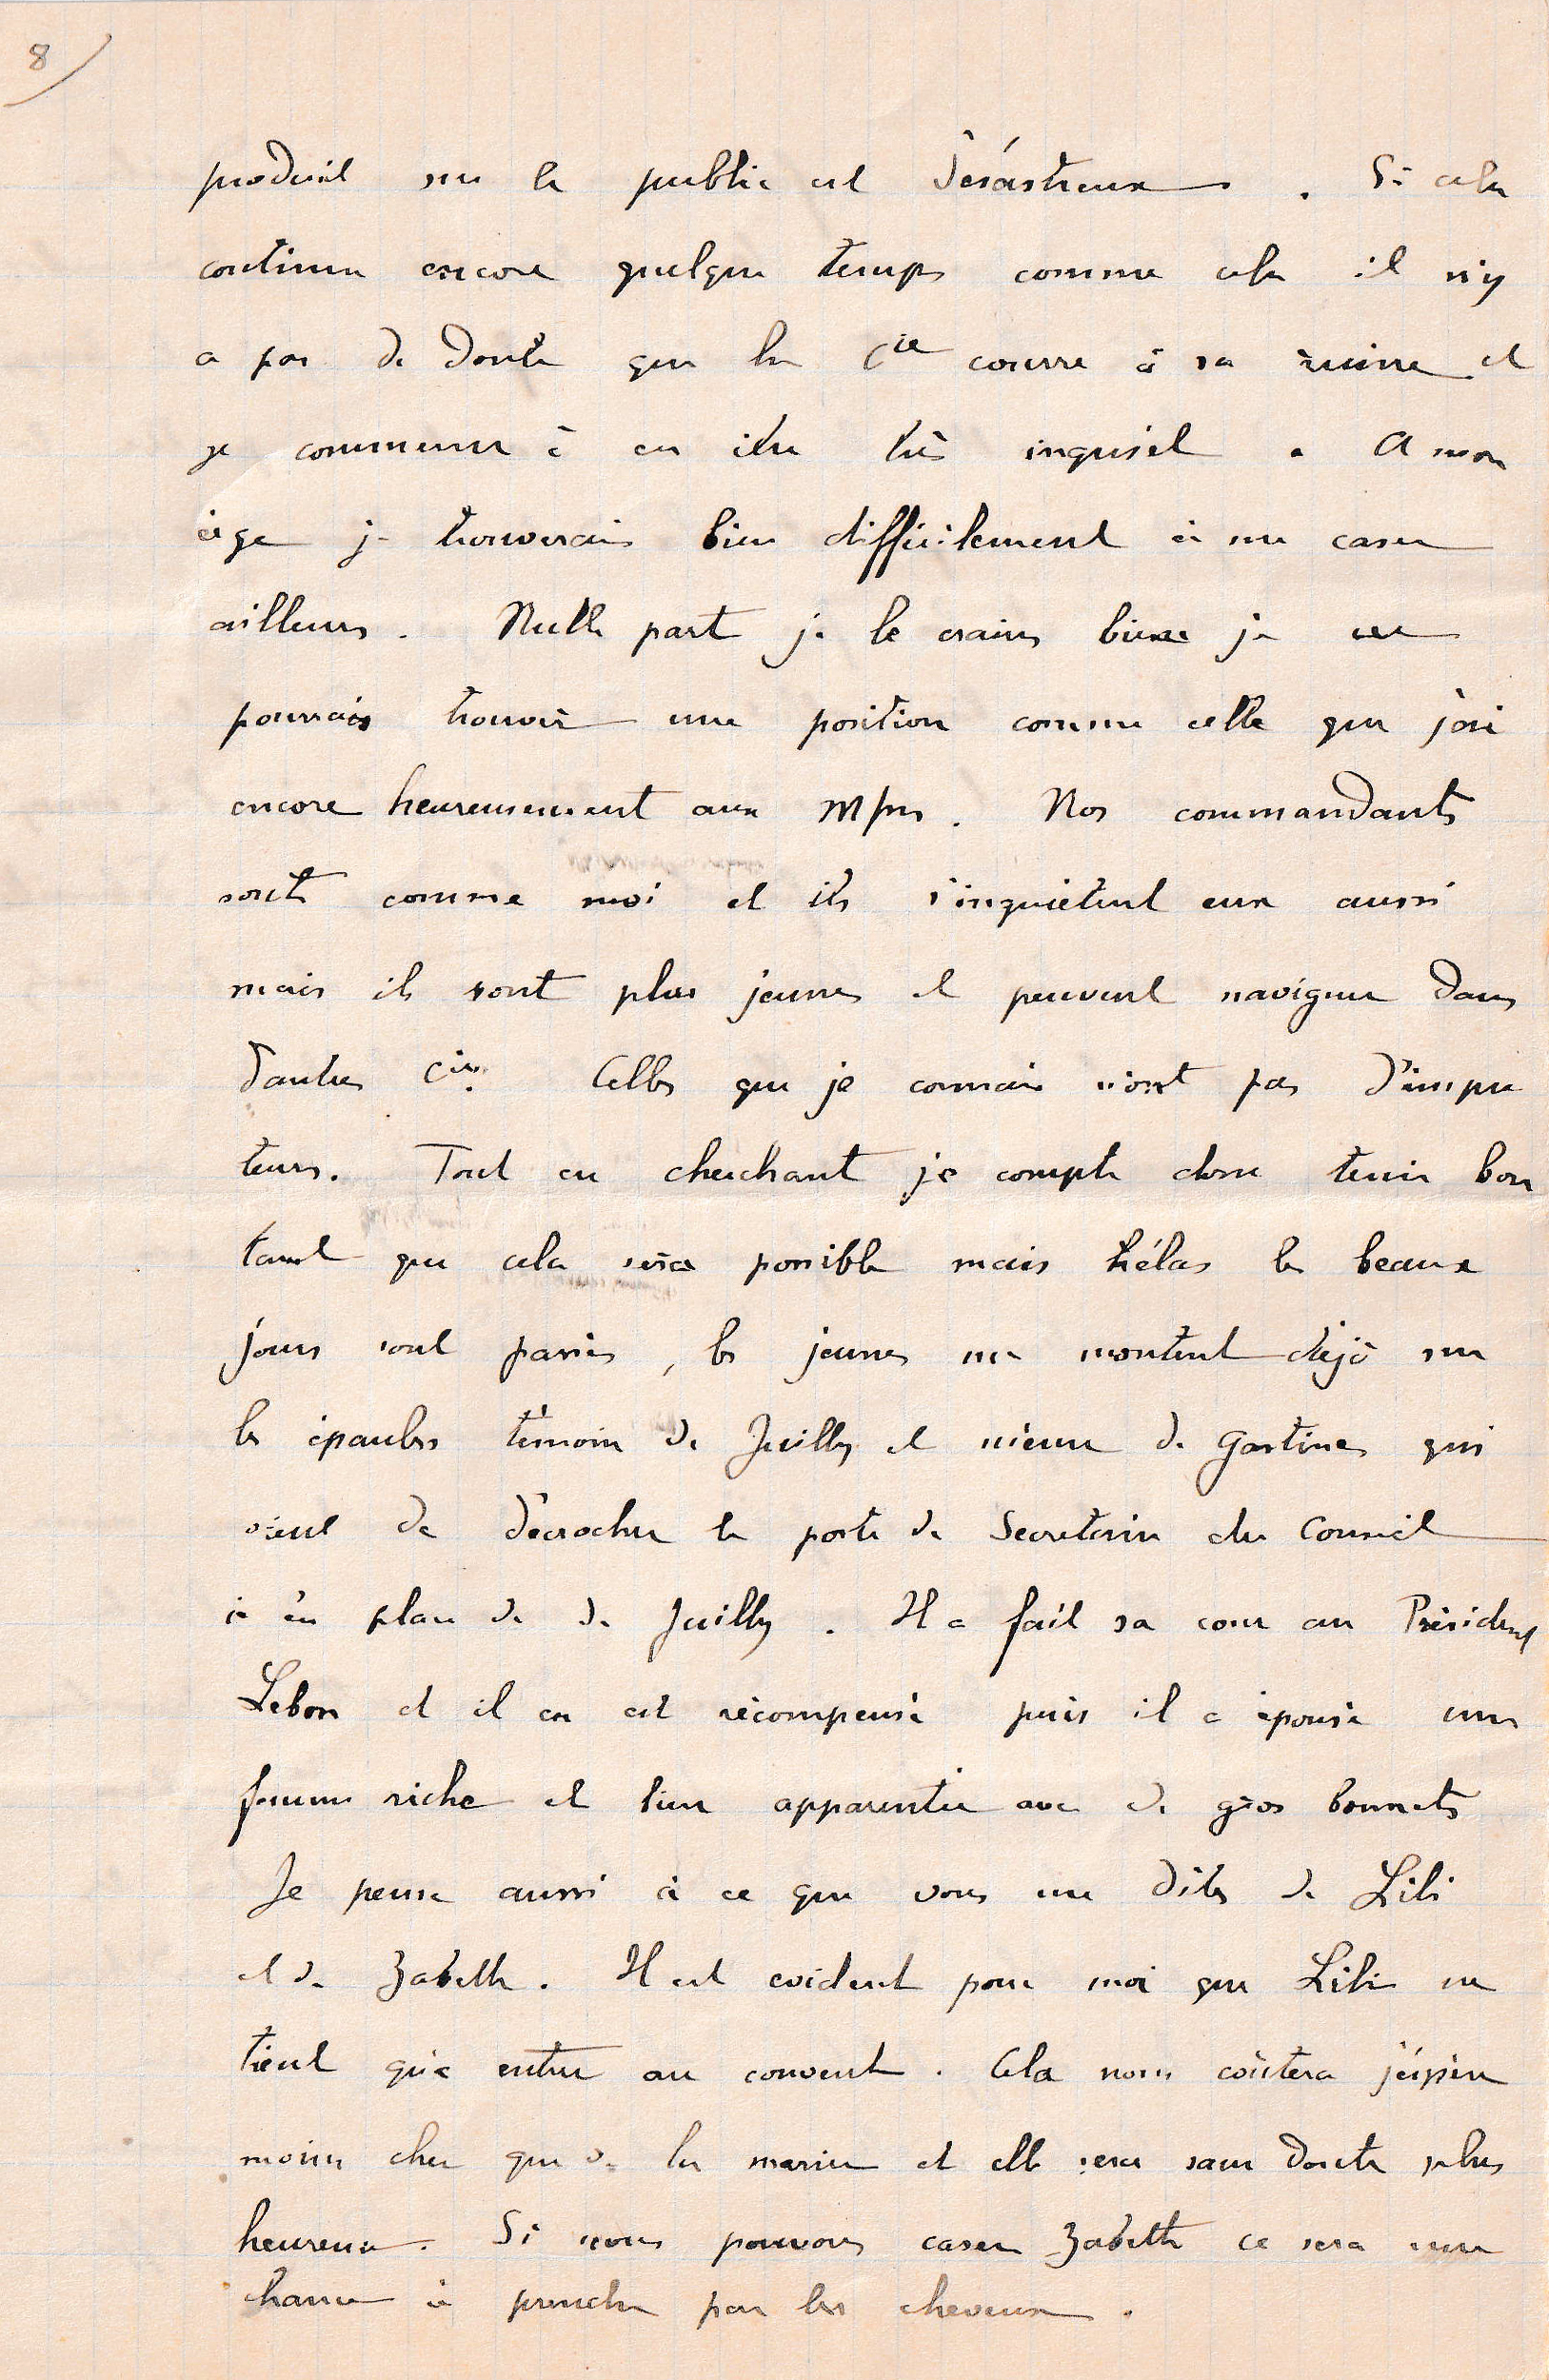 8
produit sur le public est désastreux. Si cela
continue encore quelque temps comme cela il n'y
a pas de doute que la Cie courre à sa ruine et
je commence à en être très inquiet. A mon
âge je trouverais bien difficilement à me caser
ailleurs. Nulle part je le crains bien je ne
pourrais trouver une position comme celle que j'ai
encore heureusement aux Mies. Nos commandants
sont comme moi et ils s'inquiètent eux aussi
mais ils sont plus jeunes et peuvent naviguer dans
d'autres Cies. Celles que je connais n'ont pas d'inspec
teurs. Tout en cherchant je compte donc tenir bon
tant que cela sera possible mais hélas les beaux
jours sont passés, les jeunes me montent déjà sur
les épaules témoin de Juilly et même de Gastines qui
vient de décrocher le poste de Secretaire du Conseil
de Juilly. Il a fait sa cour au Président
Lebon et il en est récompensé puis il a épousé une
femme riche et bien apparentée avec de gros bonnets
Je pense aussi à ce que vous me dites de Lili
et de Zabeth. Il est evident pour moi que Lili ne
tient qu'à entrer au couvent. Cela nous coûtera j'espère
moins cher que de la marier et elle sera sans doute plus
heureuse. Si nous pouvons caser Zabeth ce sera une
chance à prendre par les cheveux.